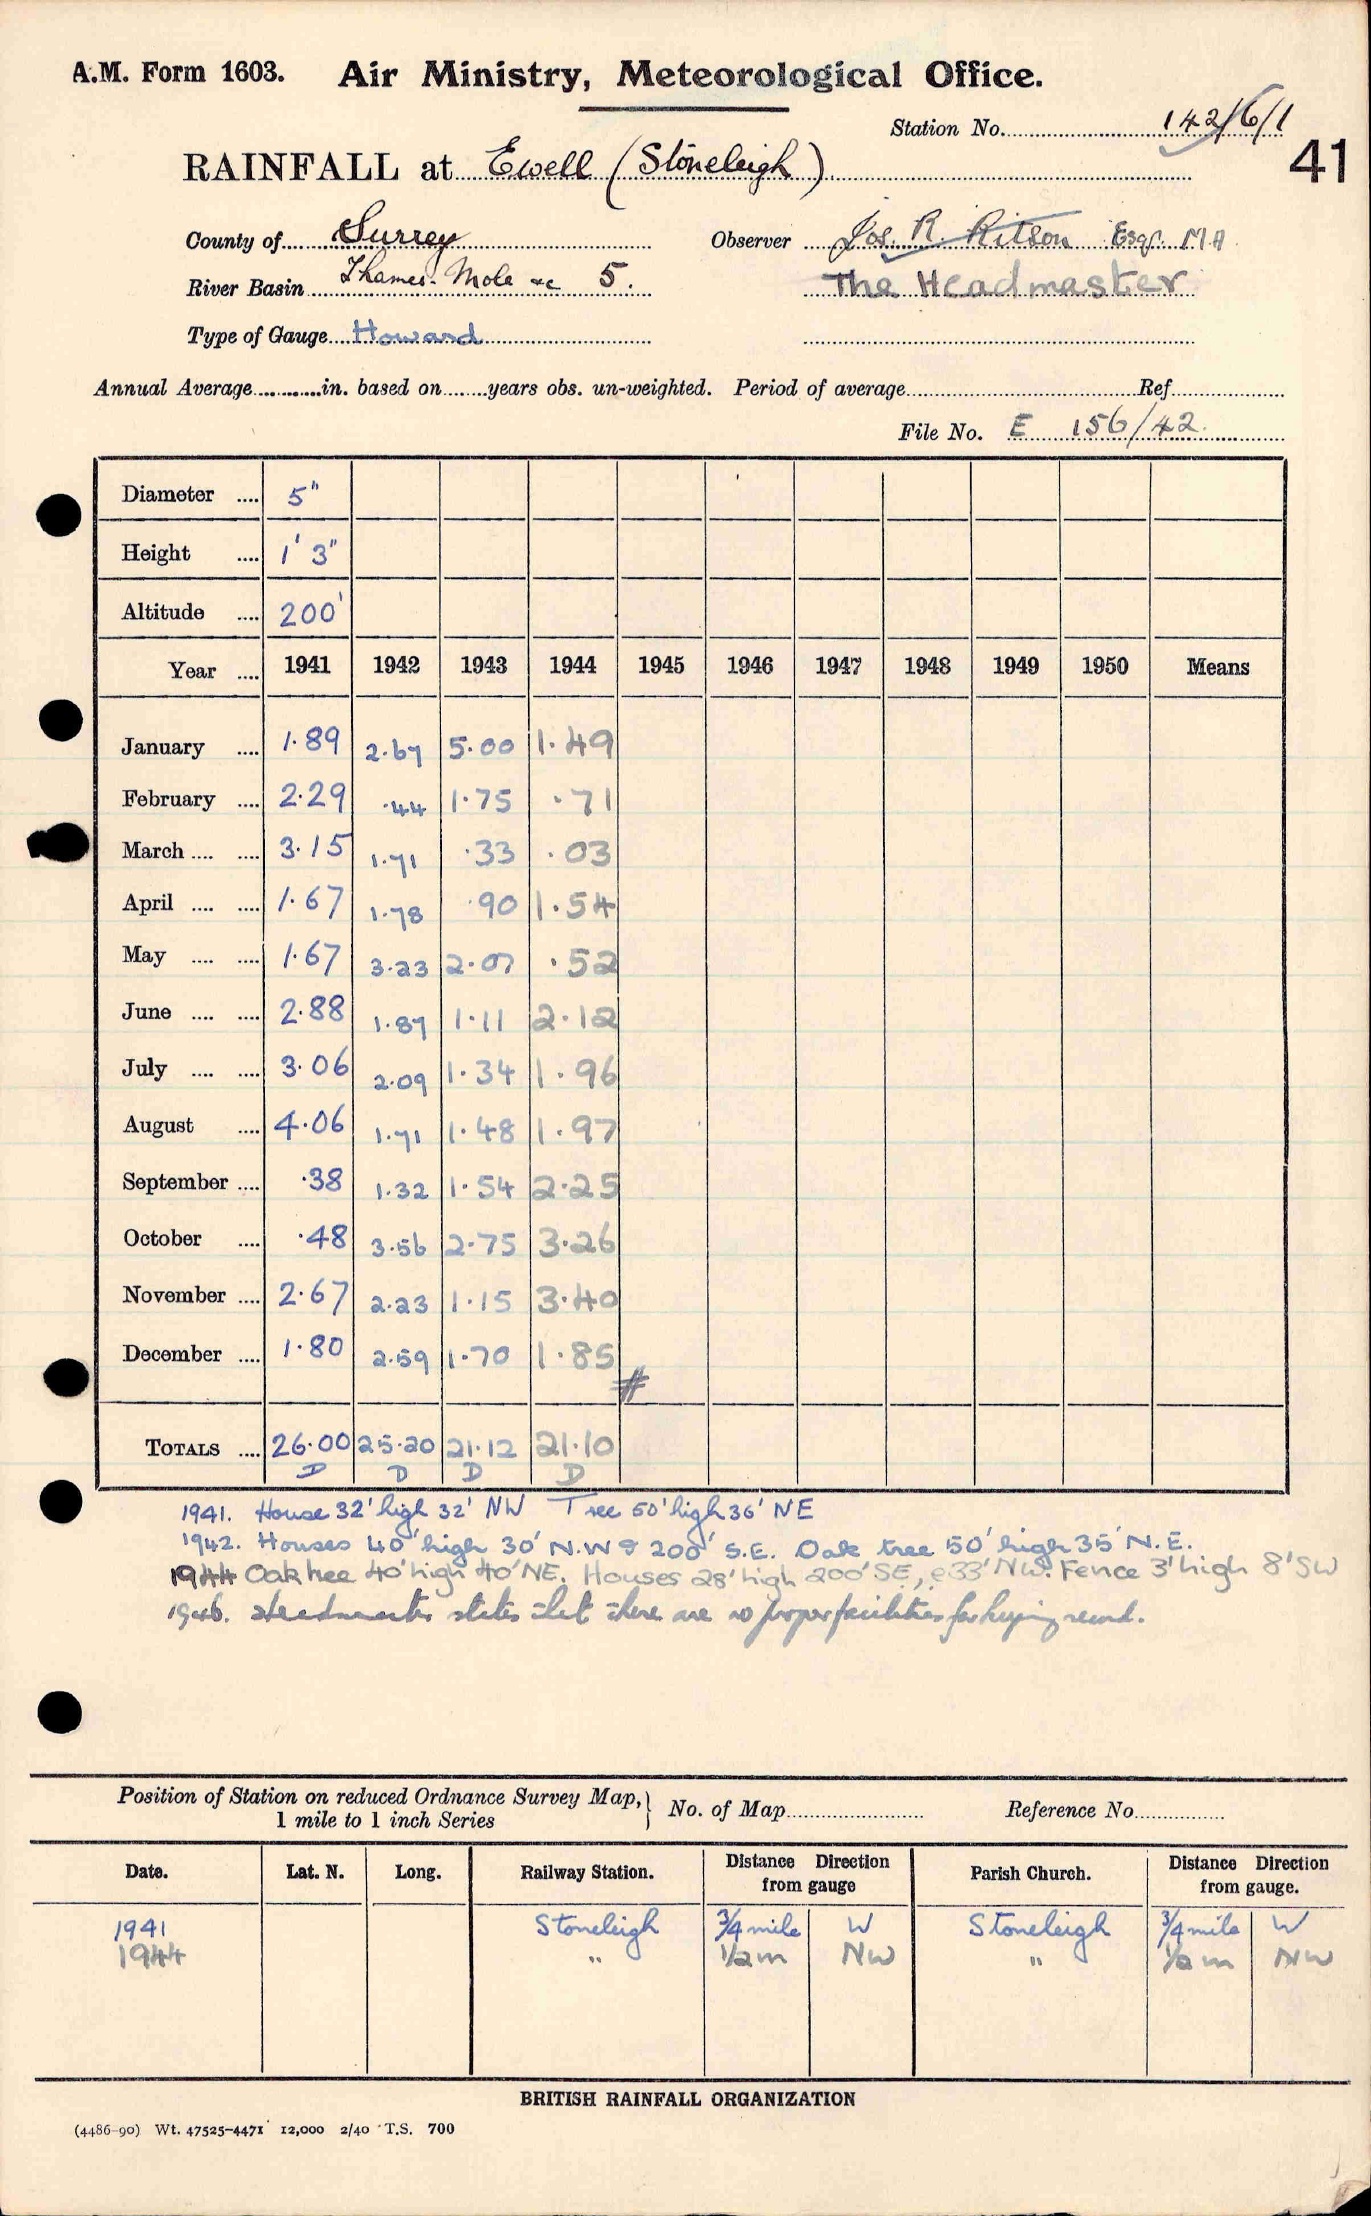 A.M. Form 1603. Air Ministry, Meteorological Office.
Station No. 142/6/1
41
RAINFALL at Ewell (Stoneleigh)
County of Surrey Observer Jos. R. Ritson Esqr. MA
River Basin Thames-Mole &c 5. The Headmaster
Type of Gauge Howard
Annual Average in. based on years obs. un-weighted. Period of average Ref
File No. E 156/42
Diameter 5"
Height 1' 3"
Altitude 200'
Year 1941 1942 1943 1944 1945 1946 1947 1948 1949 1950 Means
January 1.89 2.67 5.00 1.49
February 2.29 .44 1.75 .71
March 3.15 1.71 .33 .03
April 1.67 1.78 .90 1.54
May 1.67 3.23 2.07 .52
June 2.88 1.87 1.11 2.12
July 3.06 2.09 1.34 1.96
August 4.06 1.71 1.48 1.97
September .38 1.32 1.54 2.25
October .48 3.56 2.75 3.26
November 2.67 2.23 1.15 3.40
December 1.80 2.59 1.70 1.85
#
TOTALS 26.00 25.20 21.12 21.10
D D D D
1941. House 32' high 32' NW Tree 50' high 36' NE
1942. Houses 40' high 30' N.W & 200' S.E. Oak tree 50' high 35' N.E.
1944 Oak tree 40' high 40' NE. Houses 28' high 200' SE, & 33' NW. Fence 3' high 8' SW
1946. Headmaster states that there are no proper facilities for keeping record.
Position of Station on reduced Ordnance Survey Map, 1 mile to 1 inch Series No. of Map Reference No.
Date. Lat. N. Long. Railway Station. Distance Direction from gauge Parish Church. Distance Direction from gauge.
1941 Stoneleigh 3/4 mile W Stoneleigh 3/4 mile W
1944 " 1/2 m NW " 1/2 m NW
BRITISH RAINFALL ORGANIZATION
(4486-90) Wt. 47525-4471 12,000 2/40 T.S. 700